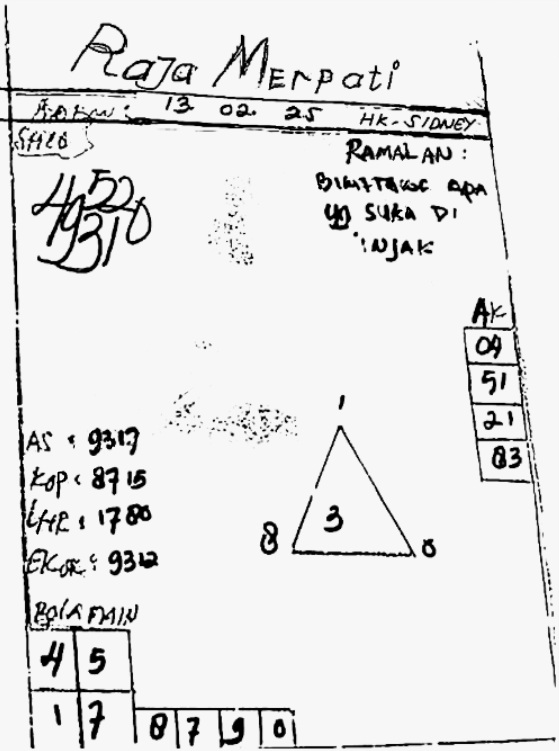 Raja Merpati
13 02 25 HK-SIDNEY
RAMALAN:
APA
yg SUKA DI
INJAK
AK
04
51
21
83
1
3
8
AS : 9317
KOP : 8715
1780
EKOR : 9312
BOLA MAIN
4 5
1 7
8 7 9 0